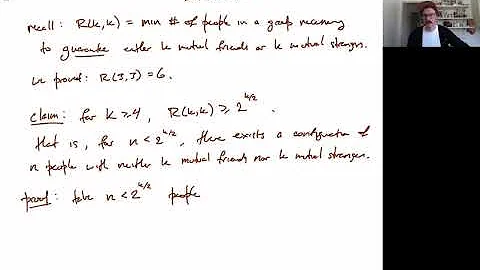 recall: R(k,k) = min # of people in a group necessary
to guarantee either k mutual friends or k mutual strangers.
we proved: R(3,3) = 6.
claim: for k ≥ 4, R(k,k) ≥ 2^{k/2}.
that is, for n < 2^{k/2}, there exists a configuration of
n people with neither k mutual friends nor k mutual strangers.
proof: take n < 2^{k/2} people